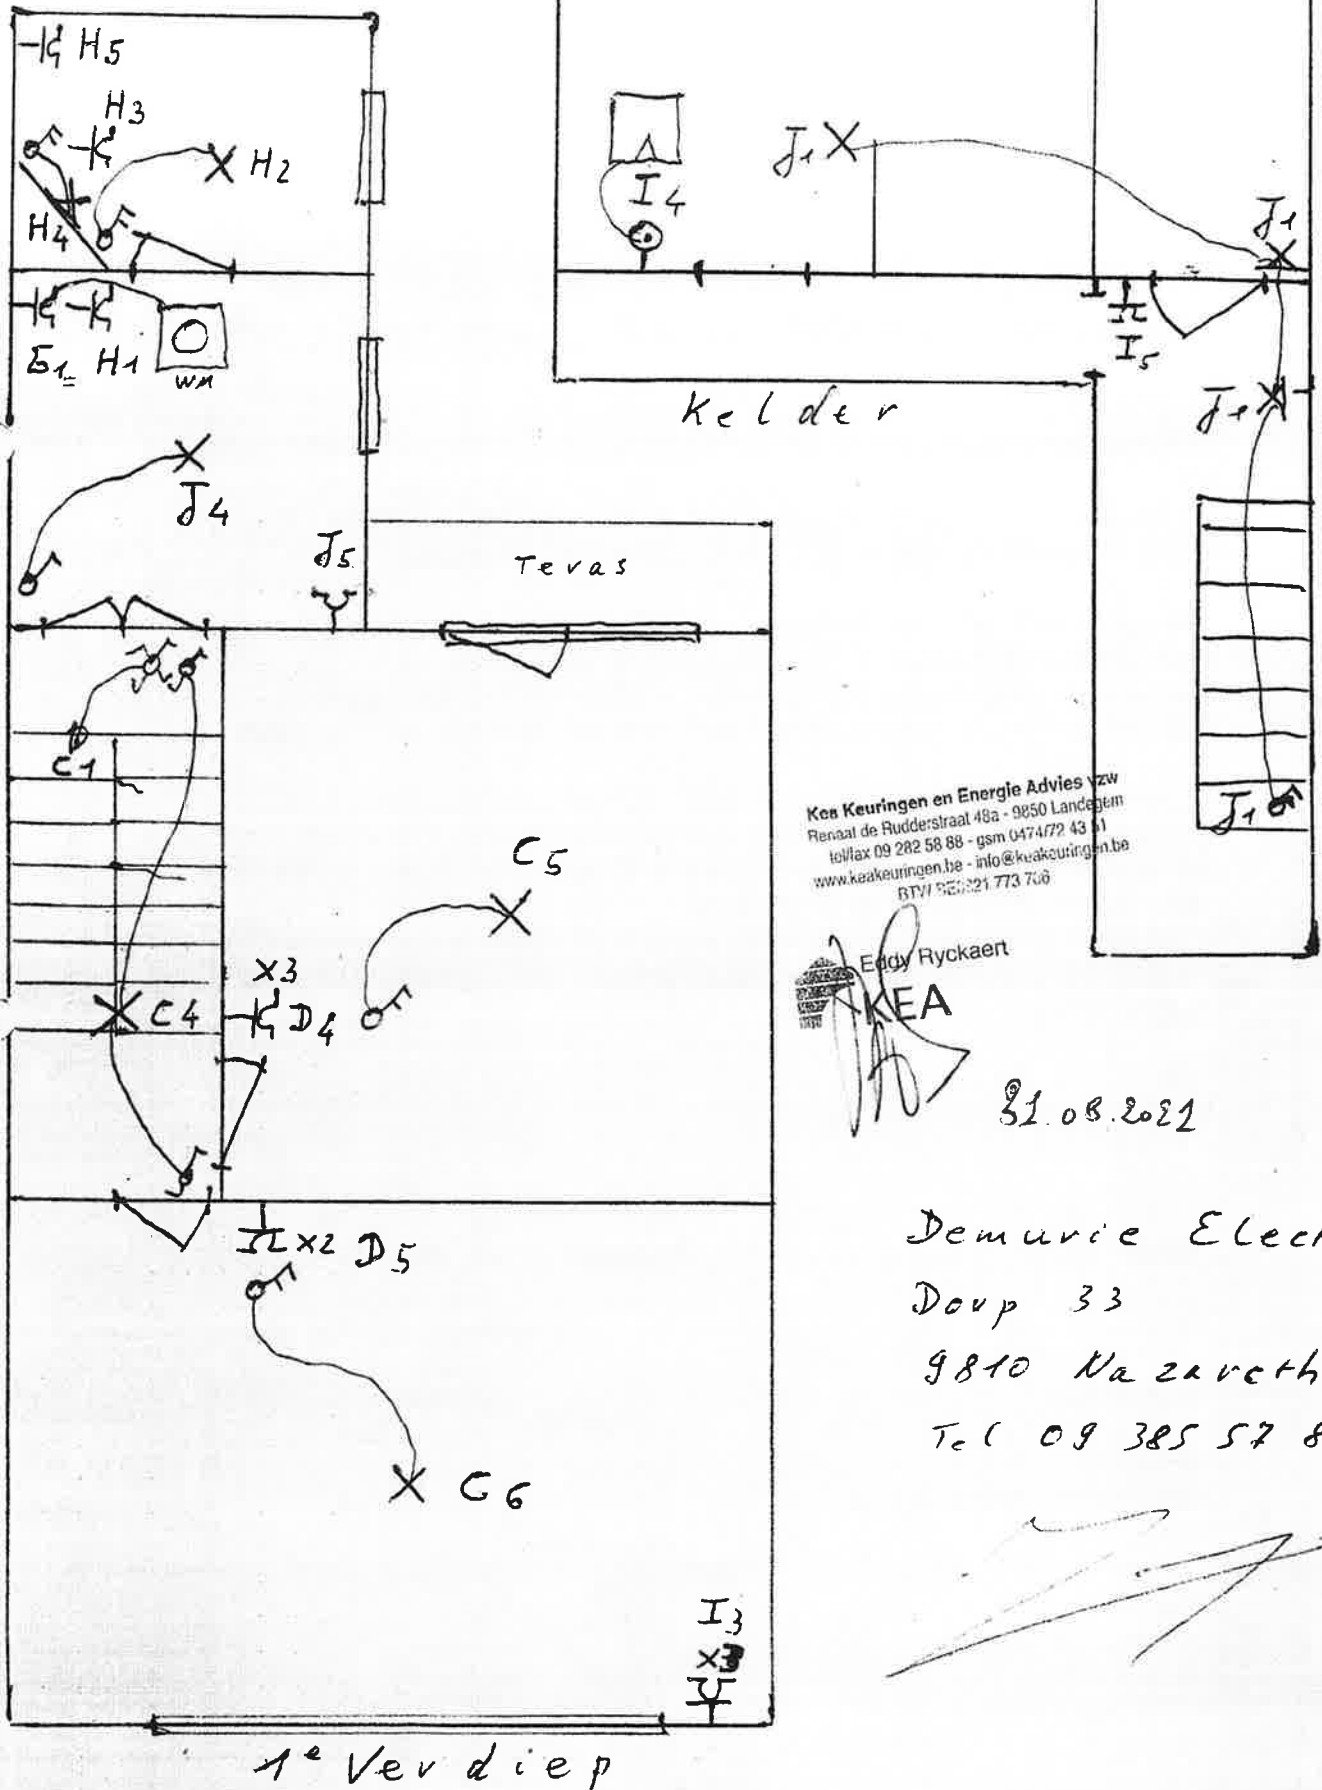 H5
H3
H2
H4
E1 H1
WM
J4
J5
Terras
C1
C5
x3
C4
D4
x2 D5
C6
I3
1e Verdiep
J1
I4
J1
I5
Kelder
J1
J1
Kea Keuringen en Energie Advies vzw
Renaat de Rudderstraat 48a - 9850 Landegem
tel/fax 09 282 58 88 - gsm 0474/72 43 51
www.keakeuringen.be - info@keakeuringen.be
Eddy Ryckaert
KEA
31.08.2021
Demurie Elect
Dorp 33
9810 Nazareth
Tel 09 385 57 8